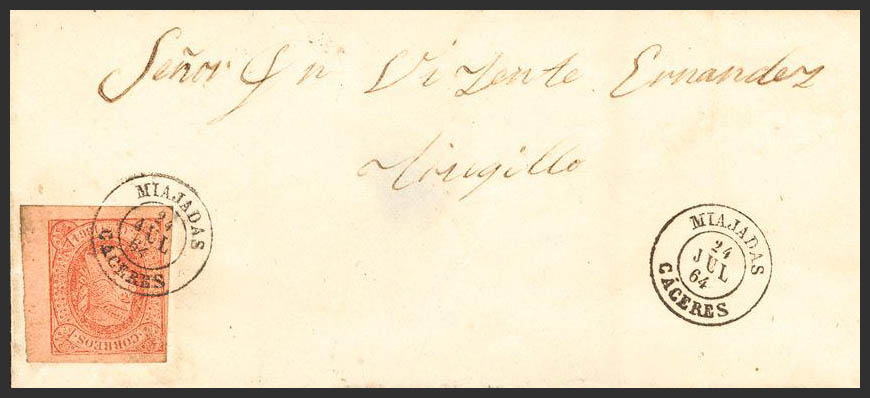 Señor Dn Vizente Ernandez
Trugillo
MIAJADAS
24
JUL
64
CÁCERES
MIAJADAS
24
JUL
64
CÁCERES
CORREOS